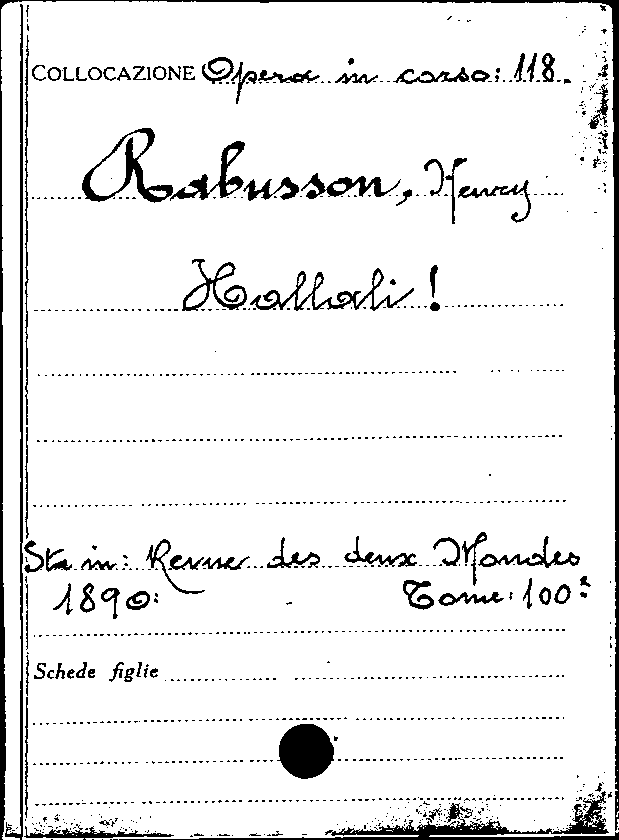 COLLOCAZIONE Opera in corso: 118.
Rabusson, Henry
Hallali!
Sta in: Revue des deux Mondes
1890: Tome: 100:
Schede figlie